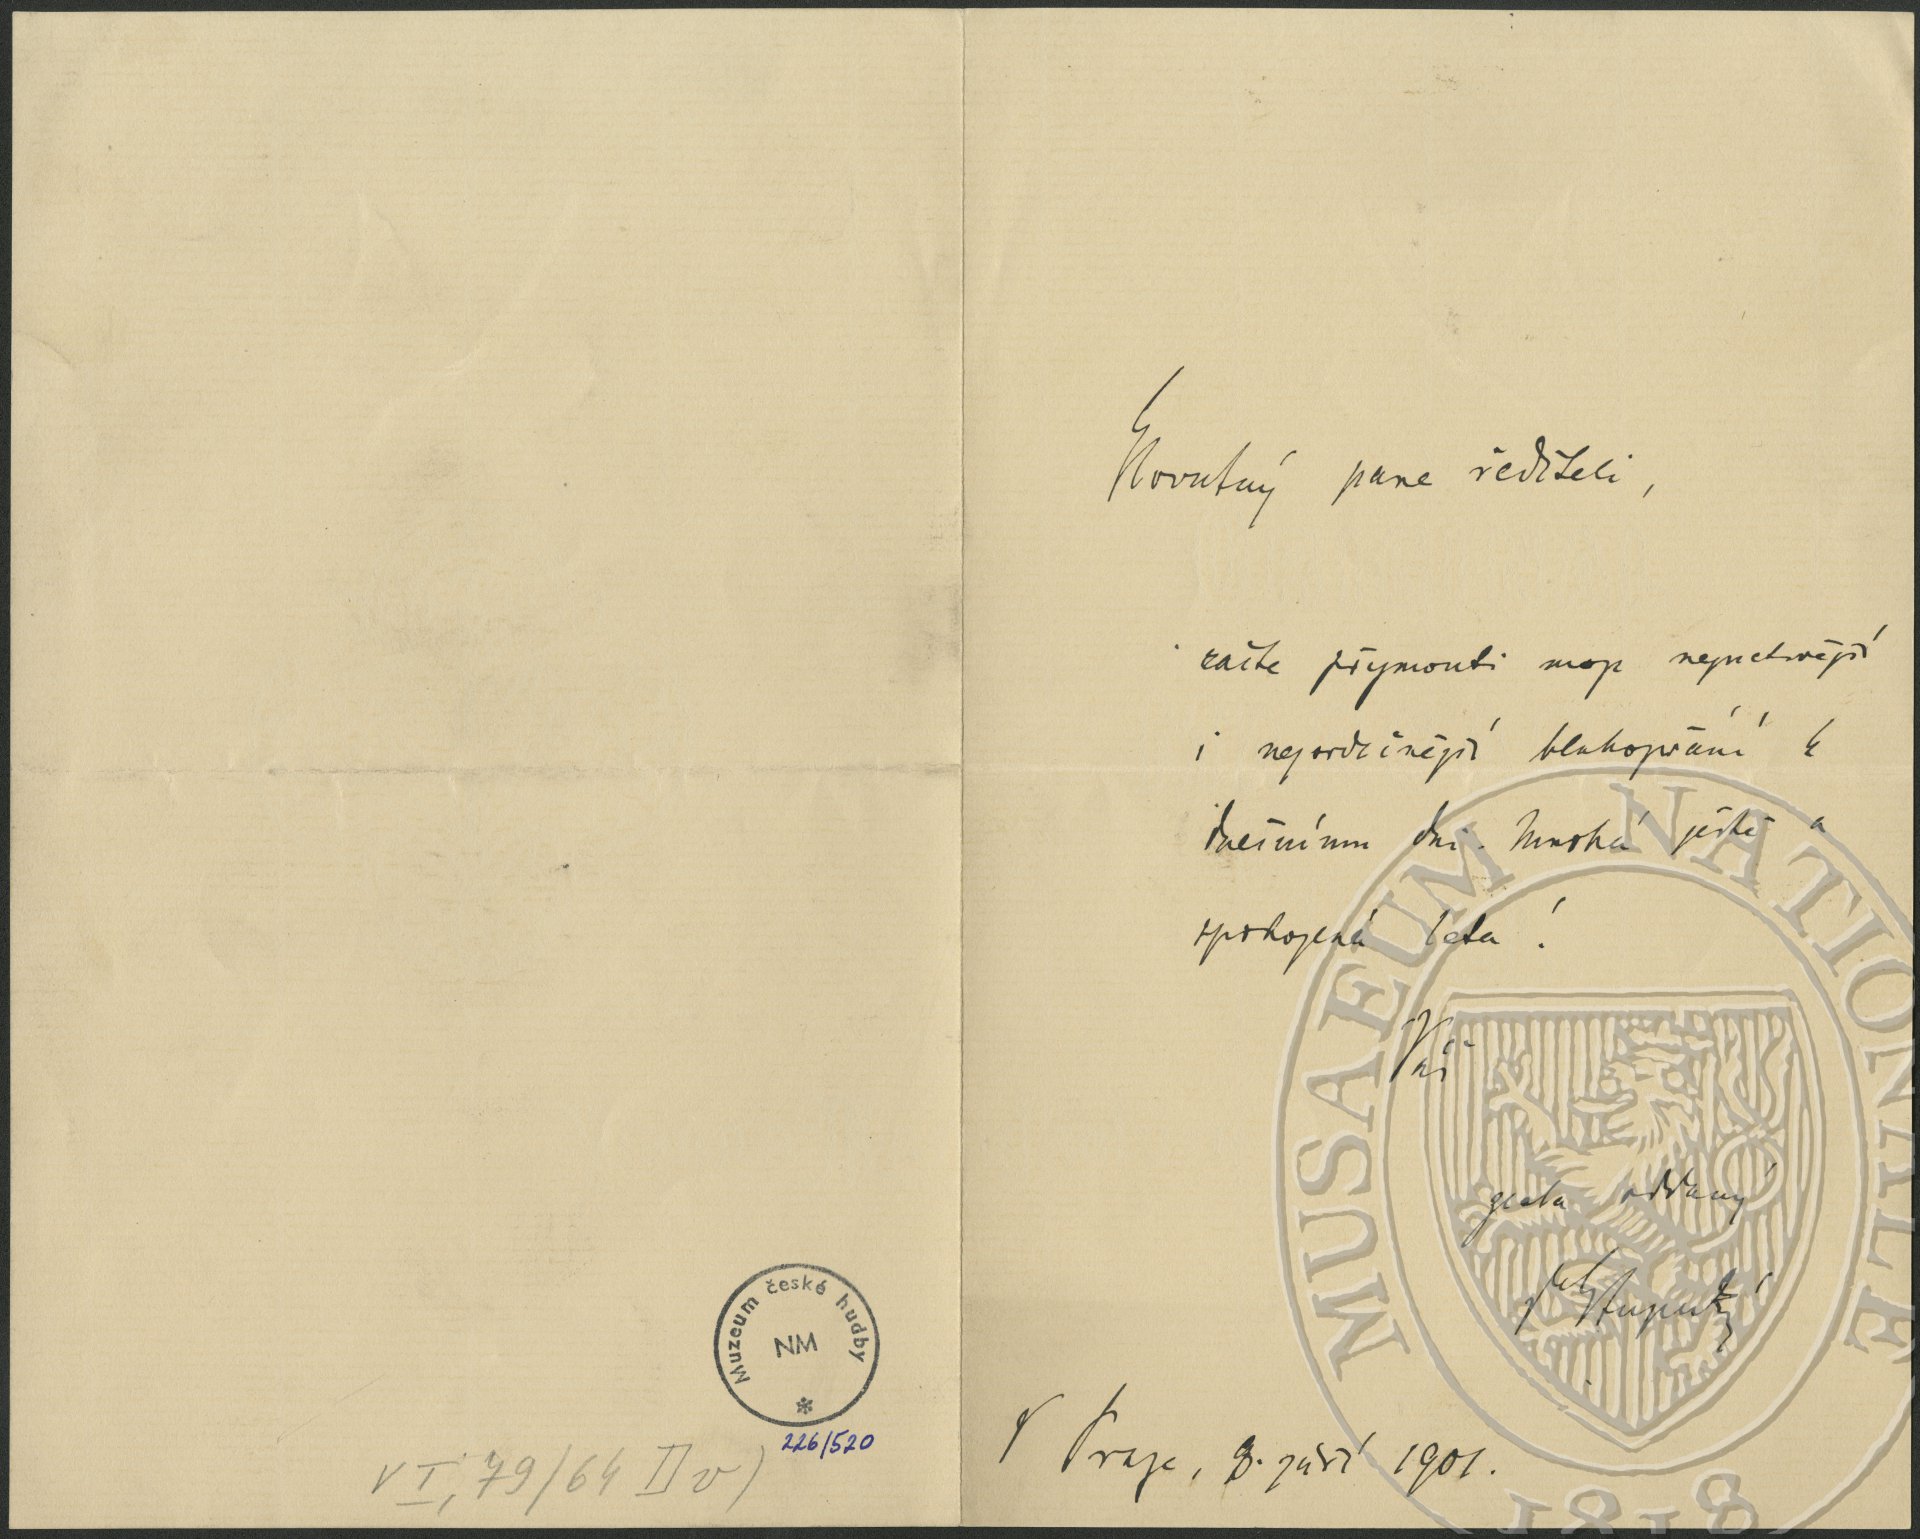 Muzeum české hudby
NM
226/520
VI, 79/64 II v)
Slovutný pane řediteli,
račte přijmouti moje nejuctivější
i nejsrdečnější blahopřání k
dnešnímu dni. Mnohá ještě a
spokojená léta!
Váš
zcela oddaný
V Praze, 8. září 1901.
MUSAEUM NATIONALE
1818